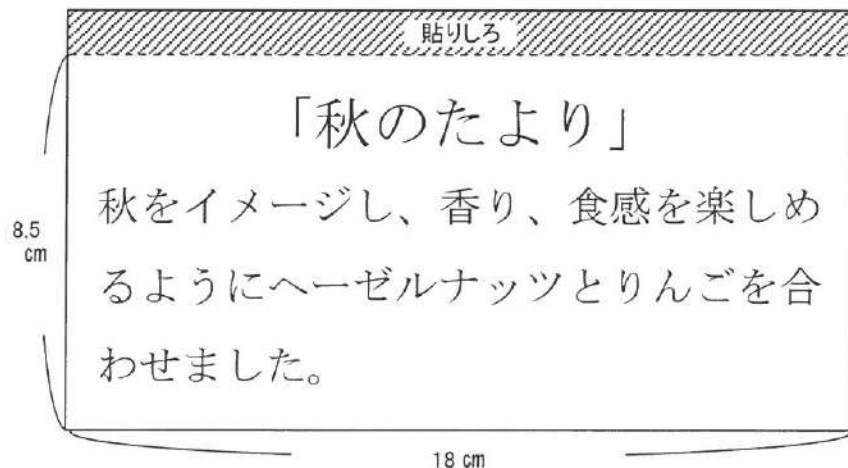 貼りしろ
「秋のたより」
秋をイメージし、香り、食感を楽しめ
るようにヘーゼルナッツとりんごを合
わせました。
8.5
cm
18 cm